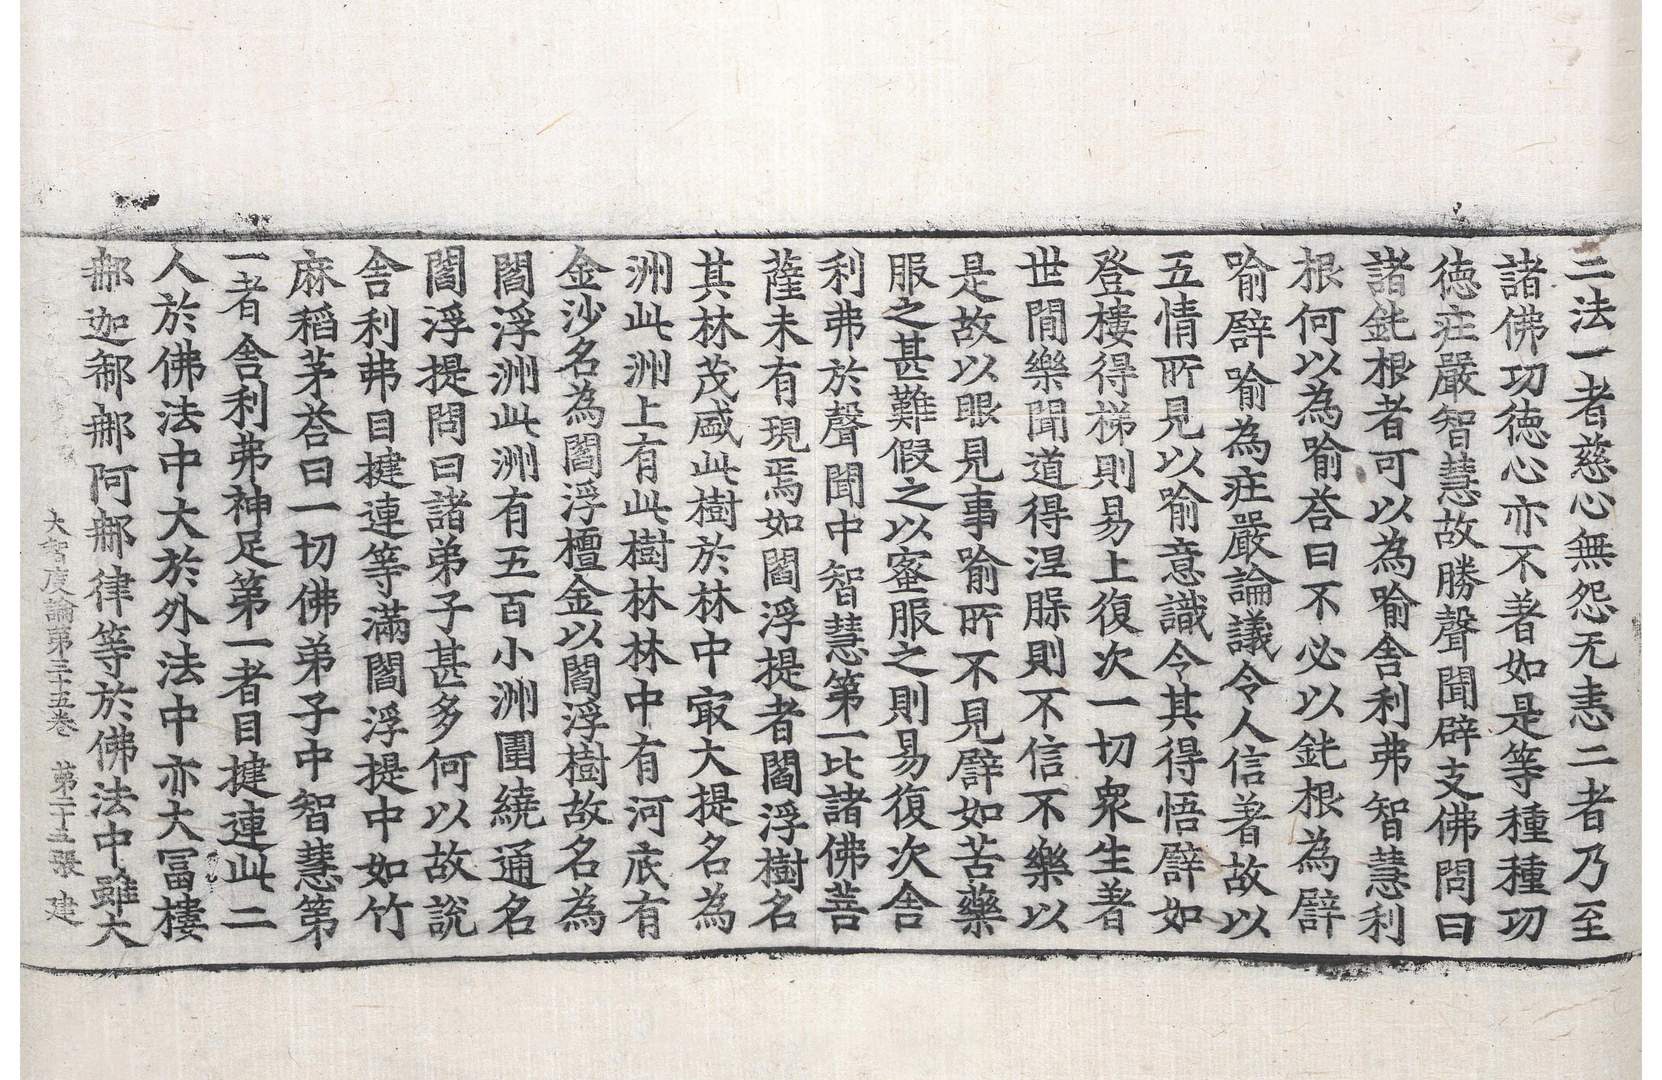 二法一者慈心無怨无恚二者乃至
諸佛功德心亦不著如是等種種功
德疘嚴智慧故勝聲聞辟支佛問曰
諸鈍根者可以為喻舍利弗智慧利
根何以為喻荅曰不必以鈍根為譬
喻譬喻為疘嚴論議令人信著故以
五情所見以喻意識令其得悟譬如
登樓得梯則易上復次一切衆生著
世閒樂聞道得涅脲則不信不樂以
是故以眼見事喻所不見譬如苦藥
服之甚難假之以蜜服之則易復次舍
利弗於聲聞中智慧第一比諸佛菩
薩未有現焉如閻浮提者閻浮樹名
其林茂盛此樹於林中㝡大提名為
洲此洲上有此樹林林中有河底有
金沙名為閻浮檀金以閻浮樹故名為
閻浮洲此洲有五百小洲圍繞通名
閻浮提問曰諸弟子甚多何以故說
舍利弗目揵連等滿閻浮提中如竹
麻稻茅荅曰一切佛弟子中智慧第
一者舍利弗神足第一者目揵連此二
人於佛法中大於外法中亦大冨樓
那迦郗那阿那律等於佛法中雖大
大智度論第三十五卷 第二十五張 建